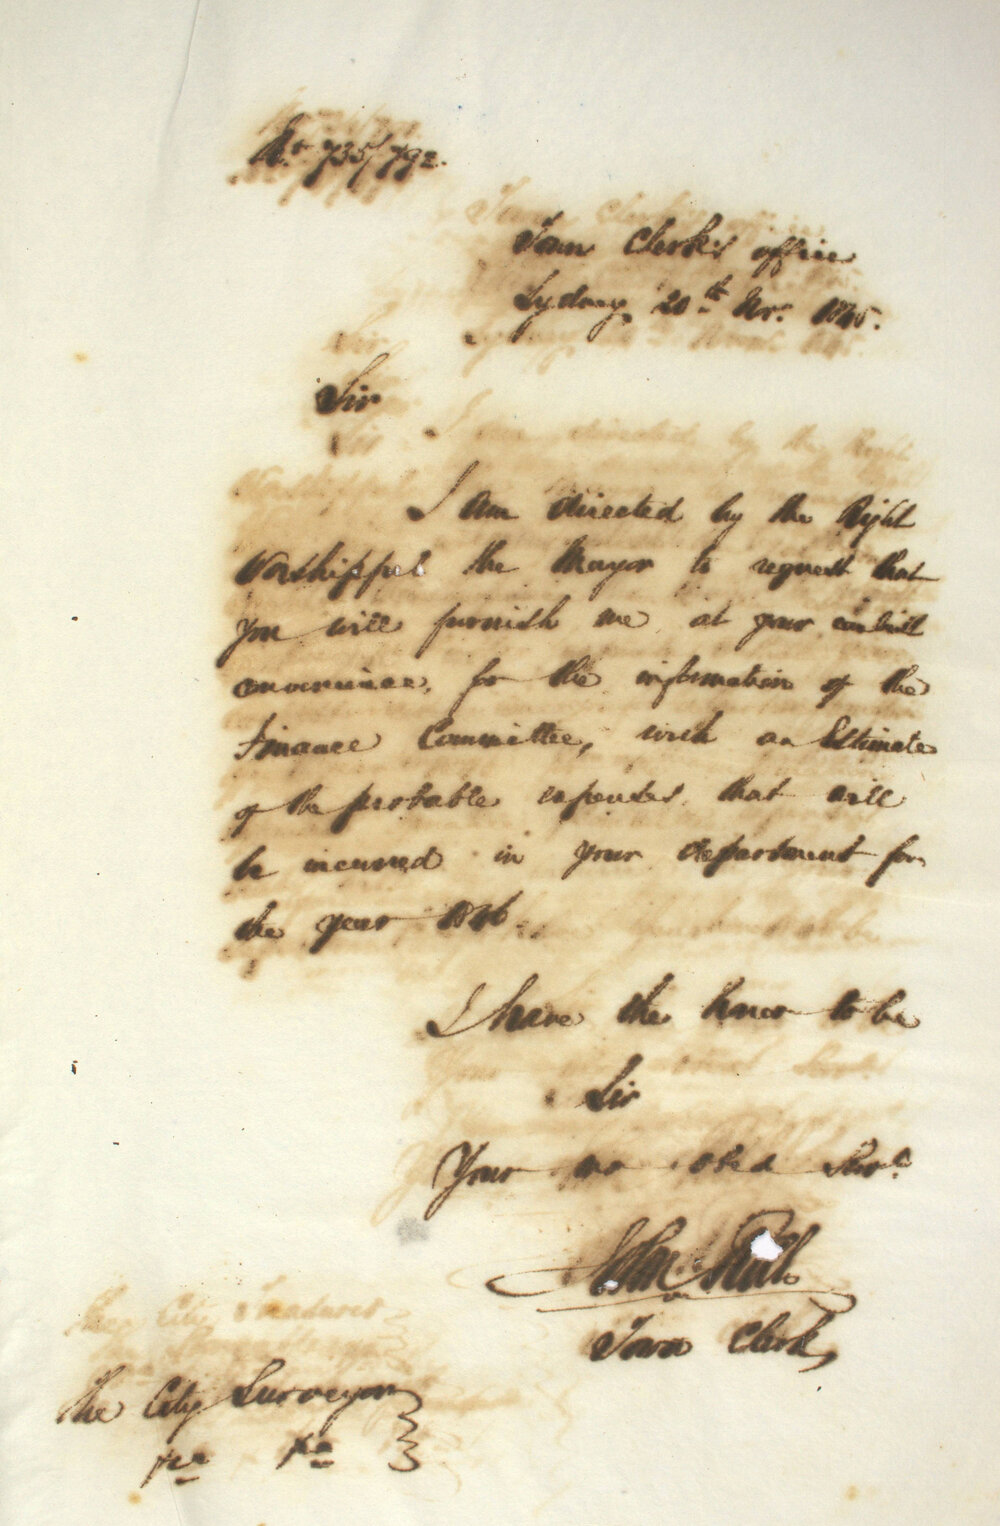 No. 735/792.
Town Clerk's office
Sydney 20th Nov. 1845.
Sir
I am directed by the Right
Worshipful the Mayor to request that
you will furnish me at your earliest
convenience, for the information of the
Finance Committee, with an Estimate
of the probable expenses that will
be incurred in your department for
the year 1846.
I have the honor to be
Sir
Your mo obed Servt.
John Rule
Town Clerk,
The City Surveyor
&c &c